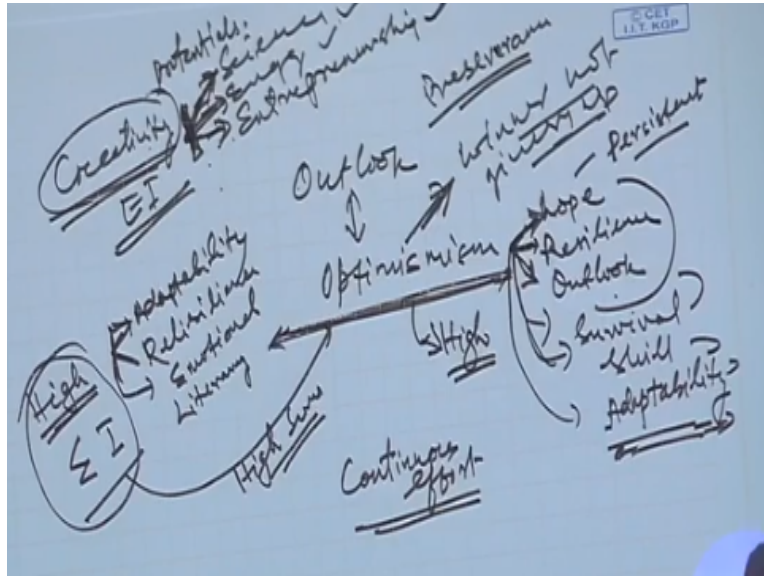 © CET
I.I.T. KGP
Potentials:
Science ✓
Energy ✓
Entrepreneurship ✓
Creativity
EI
Preseverann
Winner not
giving up
Persistent
Outlook
Optimismism
Hope
Resilienn
Outlook
Survival
Skill
Adaptability
High
Adaptability
Relisilienn
Emotional
Literary
High
ΣI
High
Continuous
effort